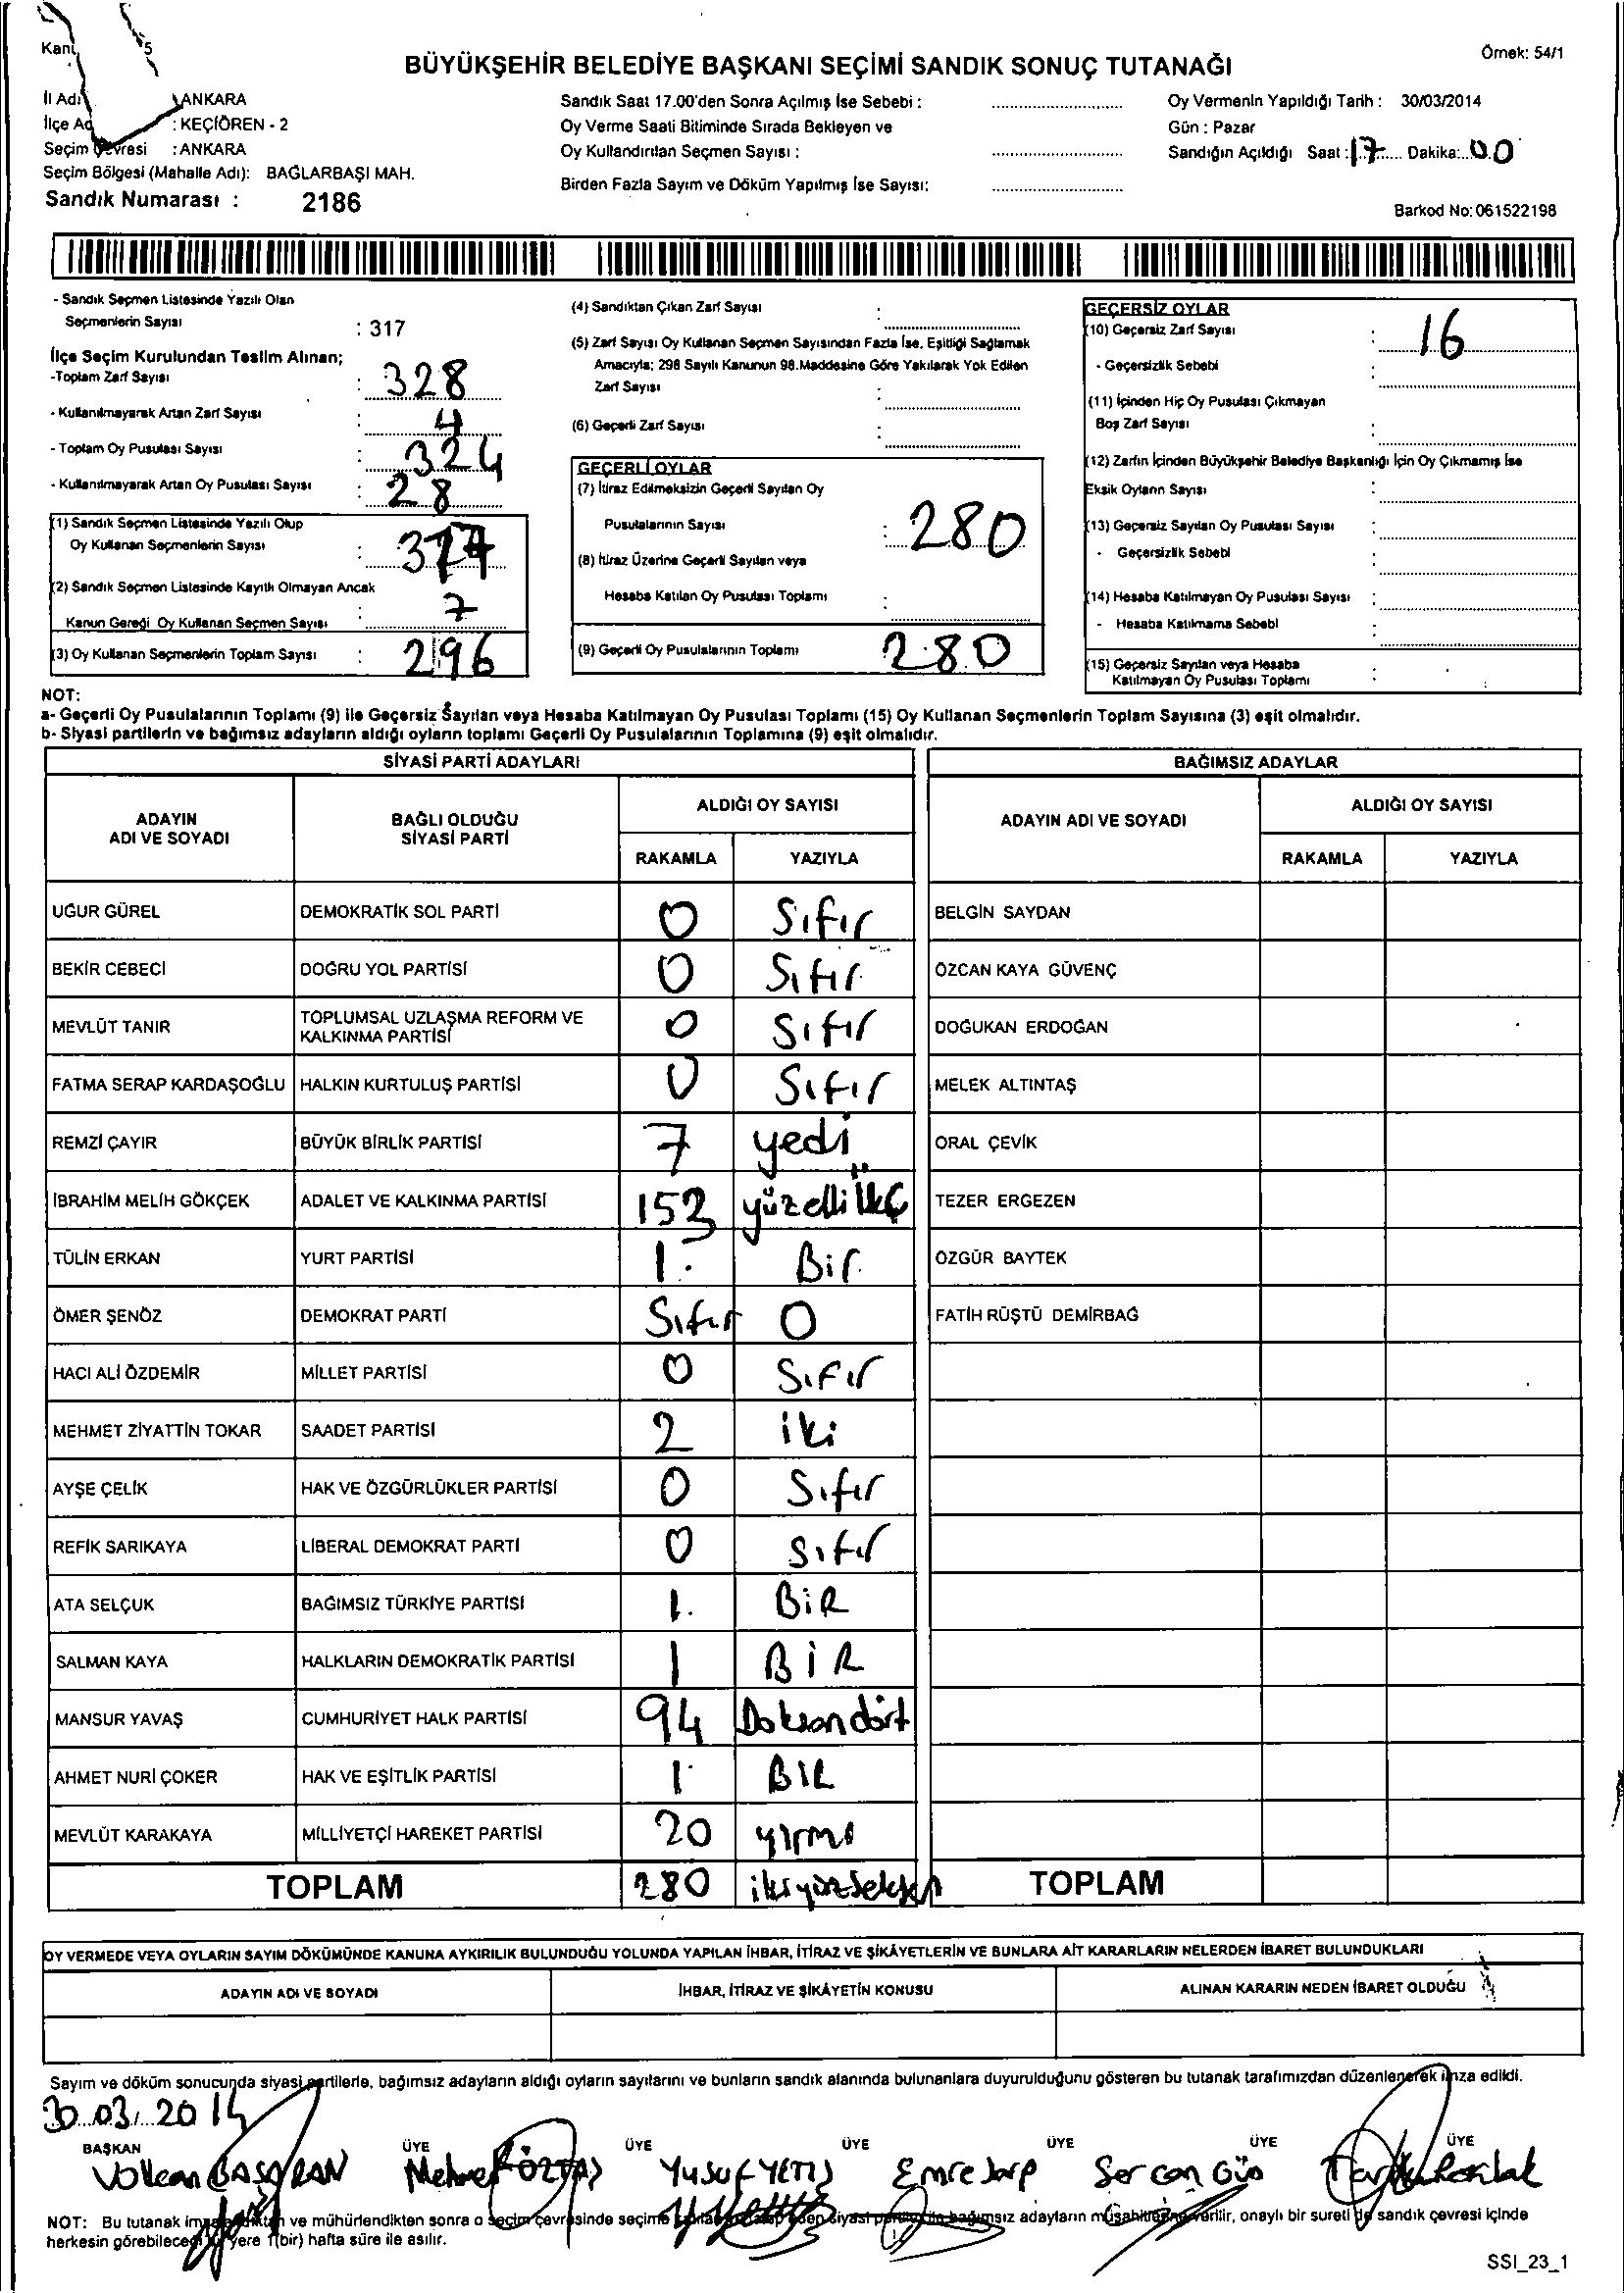 Örnek: 54/1
BÜYÜKŞEHİR BELEDİYE BAŞKANI SEÇİMİ SANDIK SONUÇ TUTANAĞI
İl Adı ANKARA
: KEÇİÖREN - 2
Seçim : ANKARA
Seçim Bölgesi (Mahalle Adı): BAĞLARBAŞI MAH.
Sandık Numarası : 2186
Sandık Saat 17.00'den Sonra Açılmış İse Sebebi :
Oy Verme Saati Bitiminde Sırada Bekleyen ve
Oy Kullandırılan Seçmen Sayısı :
Birden Fazla Sayım ve Döküm Yapılmış İse Sayısı:
Oy Vermenin Yapıldığı Tarih : 30/03/2014
Gün : Pazar
Sandığın Açıldığı Saat : 17 Dakika: 00
Barkod No: 061522198
- Sandık Seçmen Listesinde Yazılı Olan
Seçmenlerin Sayısı : 317
İlçe Seçim Kurulundan Teslim Alınan;
-Toplam Zarf Sayısı : 328
- Kullanılmayarak Artan Zarf Sayısı : 4
- Toplam Oy Pusulası Sayısı : 324
- Kullanılmayarak Artan Oy Pusulası Sayısı : 28
(1) Sandık Seçmen Listesinde Yazılı Olup
Oy Kullanan Seçmenlerin Sayısı :
(2) Sandık Seçmen Listesinde Kayıtlı Olmayan Ancak
Kanun Gereği Oy Kullanan Seçmen Sayısı : 7
(3) Oy Kullanan Seçmenlerin Toplam Sayısı : 296
(4) Sandıktan Çıkan Zarf Sayısı :
(5) Zarf Sayısı Oy Kullanan Seçmen Sayısından Fazla İse, Eşitliği Sağlamak
Amacıyla; 298 Sayılı Kanunun 98.Maddesine Göre Yakılarak Yok Edilen
Zarf Sayısı :
(6) Geçerli Zarf Sayısı :
GEÇERLİ OYLAR
(7) İtiraz Edilmeksizin Geçerli Sayılan Oy
Pusulalarının Sayısı : 280
(8) İtiraz Üzerine Geçerli Sayılan veya
Hesaba Katılan Oy Pusulası Toplamı :
(9) Geçerli Oy Pusulalarının Toplamı 280
GEÇERSİZ OYLAR
(10) Geçersiz Zarf Sayısı : 16
- Geçersizlik Sebebi :
(11) İçinden Hiç Oy Pusulası Çıkmayan
Boş Zarf Sayısı :
(12) Zarfın İçinden Büyükşehir Belediye Başkanlığı İçin Oy Çıkmamış İse
Eksik Oyların Sayısı :
(13) Geçersiz Sayılan Oy Pusulası Sayısı :
- Geçersizlik Sebebi :
(14) Hesaba Katılmayan Oy Pusulası Sayısı :
- Hesaba Katılmama Sebebi :
(15) Geçersiz Sayılan veya Hesaba
Katılmayan Oy Pusulası Toplamı :
NOT:
a- Geçerli Oy Pusulalarının Toplamı (9) ile Geçersiz Sayılan veya Hesaba Katılmayan Oy Pusulası Toplamı (15) Oy Kullanan Seçmenlerin Toplam Sayısına (3) eşit olmalıdır.
b- Siyasi partilerin ve bağımsız adayların aldığı oyların toplamı Geçerli Oy Pusulalarının Toplamına (9) eşit olmalıdır.
SİYASİ PARTİ ADAYLARI
ADAYIN ADI VE SOYADI BAĞLI OLDUĞU SİYASİ PARTİ ALDIĞI OY SAYISI
RAKAMLA YAZIYLA
UĞUR GÜREL DEMOKRATİK SOL PARTİ 0 Sıfır
BEKİR CEBECİ DOĞRU YOL PARTİSİ 0 Sıfır
MEVLÜT TANIR TOPLUMSAL UZLAŞMA REFORM VE KALKINMA PARTİSİ 0 Sıfır
FATMA SERAP KARDAŞOĞLU HALKIN KURTULUŞ PARTİSİ 0 Sıfır
REMZİ ÇAYIR BÜYÜK BİRLİK PARTİSİ 7 yedi
İBRAHİM MELİH GÖKÇEK ADALET VE KALKINMA PARTİSİ 153
TÜLİN ERKAN YURT PARTİSİ 1. Bir.
ÖMER ŞENÖZ DEMOKRAT PARTİ Sıfır 0
HACI ALİ ÖZDEMİR MİLLET PARTİSİ 0 Sıfır
MEHMET ZİYATTİN TOKAR SAADET PARTİSİ 2 iki
AYŞE ÇELİK HAK VE ÖZGÜRLÜKLER PARTİSİ 0 Sıfır
REFİK SARIKAYA LİBERAL DEMOKRAT PARTİ 0 Sıfır
ATA SELÇUK BAĞIMSIZ TÜRKİYE PARTİSİ 1. BİR
SALMAN KAYA HALKLARIN DEMOKRATİK PARTİSİ 1 BİR
MANSUR YAVAŞ CUMHURİYET HALK PARTİSİ 94 Doksandört
AHMET NURİ ÇOKER HAK VE EŞİTLİK PARTİSİ 1 BIR
MEVLÜT KARAKAYA MİLLİYETÇİ HAREKET PARTİSİ 20 yirmi
TOPLAM 280 ikiyüzseksen
BAĞIMSIZ ADAYLAR
ADAYIN ADI VE SOYADI ALDIĞI OY SAYISI
RAKAMLA YAZIYLA
BELGİN SAYDAN
ÖZCAN KAYA GÜVENÇ
DOĞUKAN ERDOĞAN
MELEK ALTINTAŞ
ORAL ÇEVİK
TEZER ERGEZEN
ÖZGÜR BAYTEK
FATİH RÜŞTÜ DEMİRBAĞ
TOPLAM
OY VERMEDE VEYA OYLARIN SAYIM DÖKÜMÜNDE KANUNA AYKIRILIK BULUNDUĞU YOLUNDA YAPILAN İHBAR, İTİRAZ VE ŞİKÂYETLERİN VE BUNLARA AİT KARARLARIN NELERDEN İBARET BULUNDUKLARI
ADAYIN ADI VE SOYADI İHBAR, İTİRAZ VE ŞİKÂYETİN KONUSU ALINAN KARARIN NEDEN İBARET OLDUĞU
Sayım ve döküm sonucunda siyasi partilerle, bağımsız adayların aldığı oyların sayılarını ve bunların sandık alanında bulunanlara duyurulduğunu gösteren bu tutanak tarafımızdan düzenlenerek imza edildi.
30.03.2014
BAŞKAN ÜYE ÜYE ÜYE ÜYE ÜYE ÜYE
Volkan BAŞARAN Mehmet ÖZTAŞ Yusuf YETİŞ Emre Sercan Güs
NOT: Bu tutanak ve mühürlendikten sonra o seçim çevresinde seçime siyasi bağımsız adayların müşahitlerine verilir, onaylı bir sureti de sandık çevresi içinde
herkesin görebileceği yere 1(bir) hafta süre ile asılır.
SSI_23_1